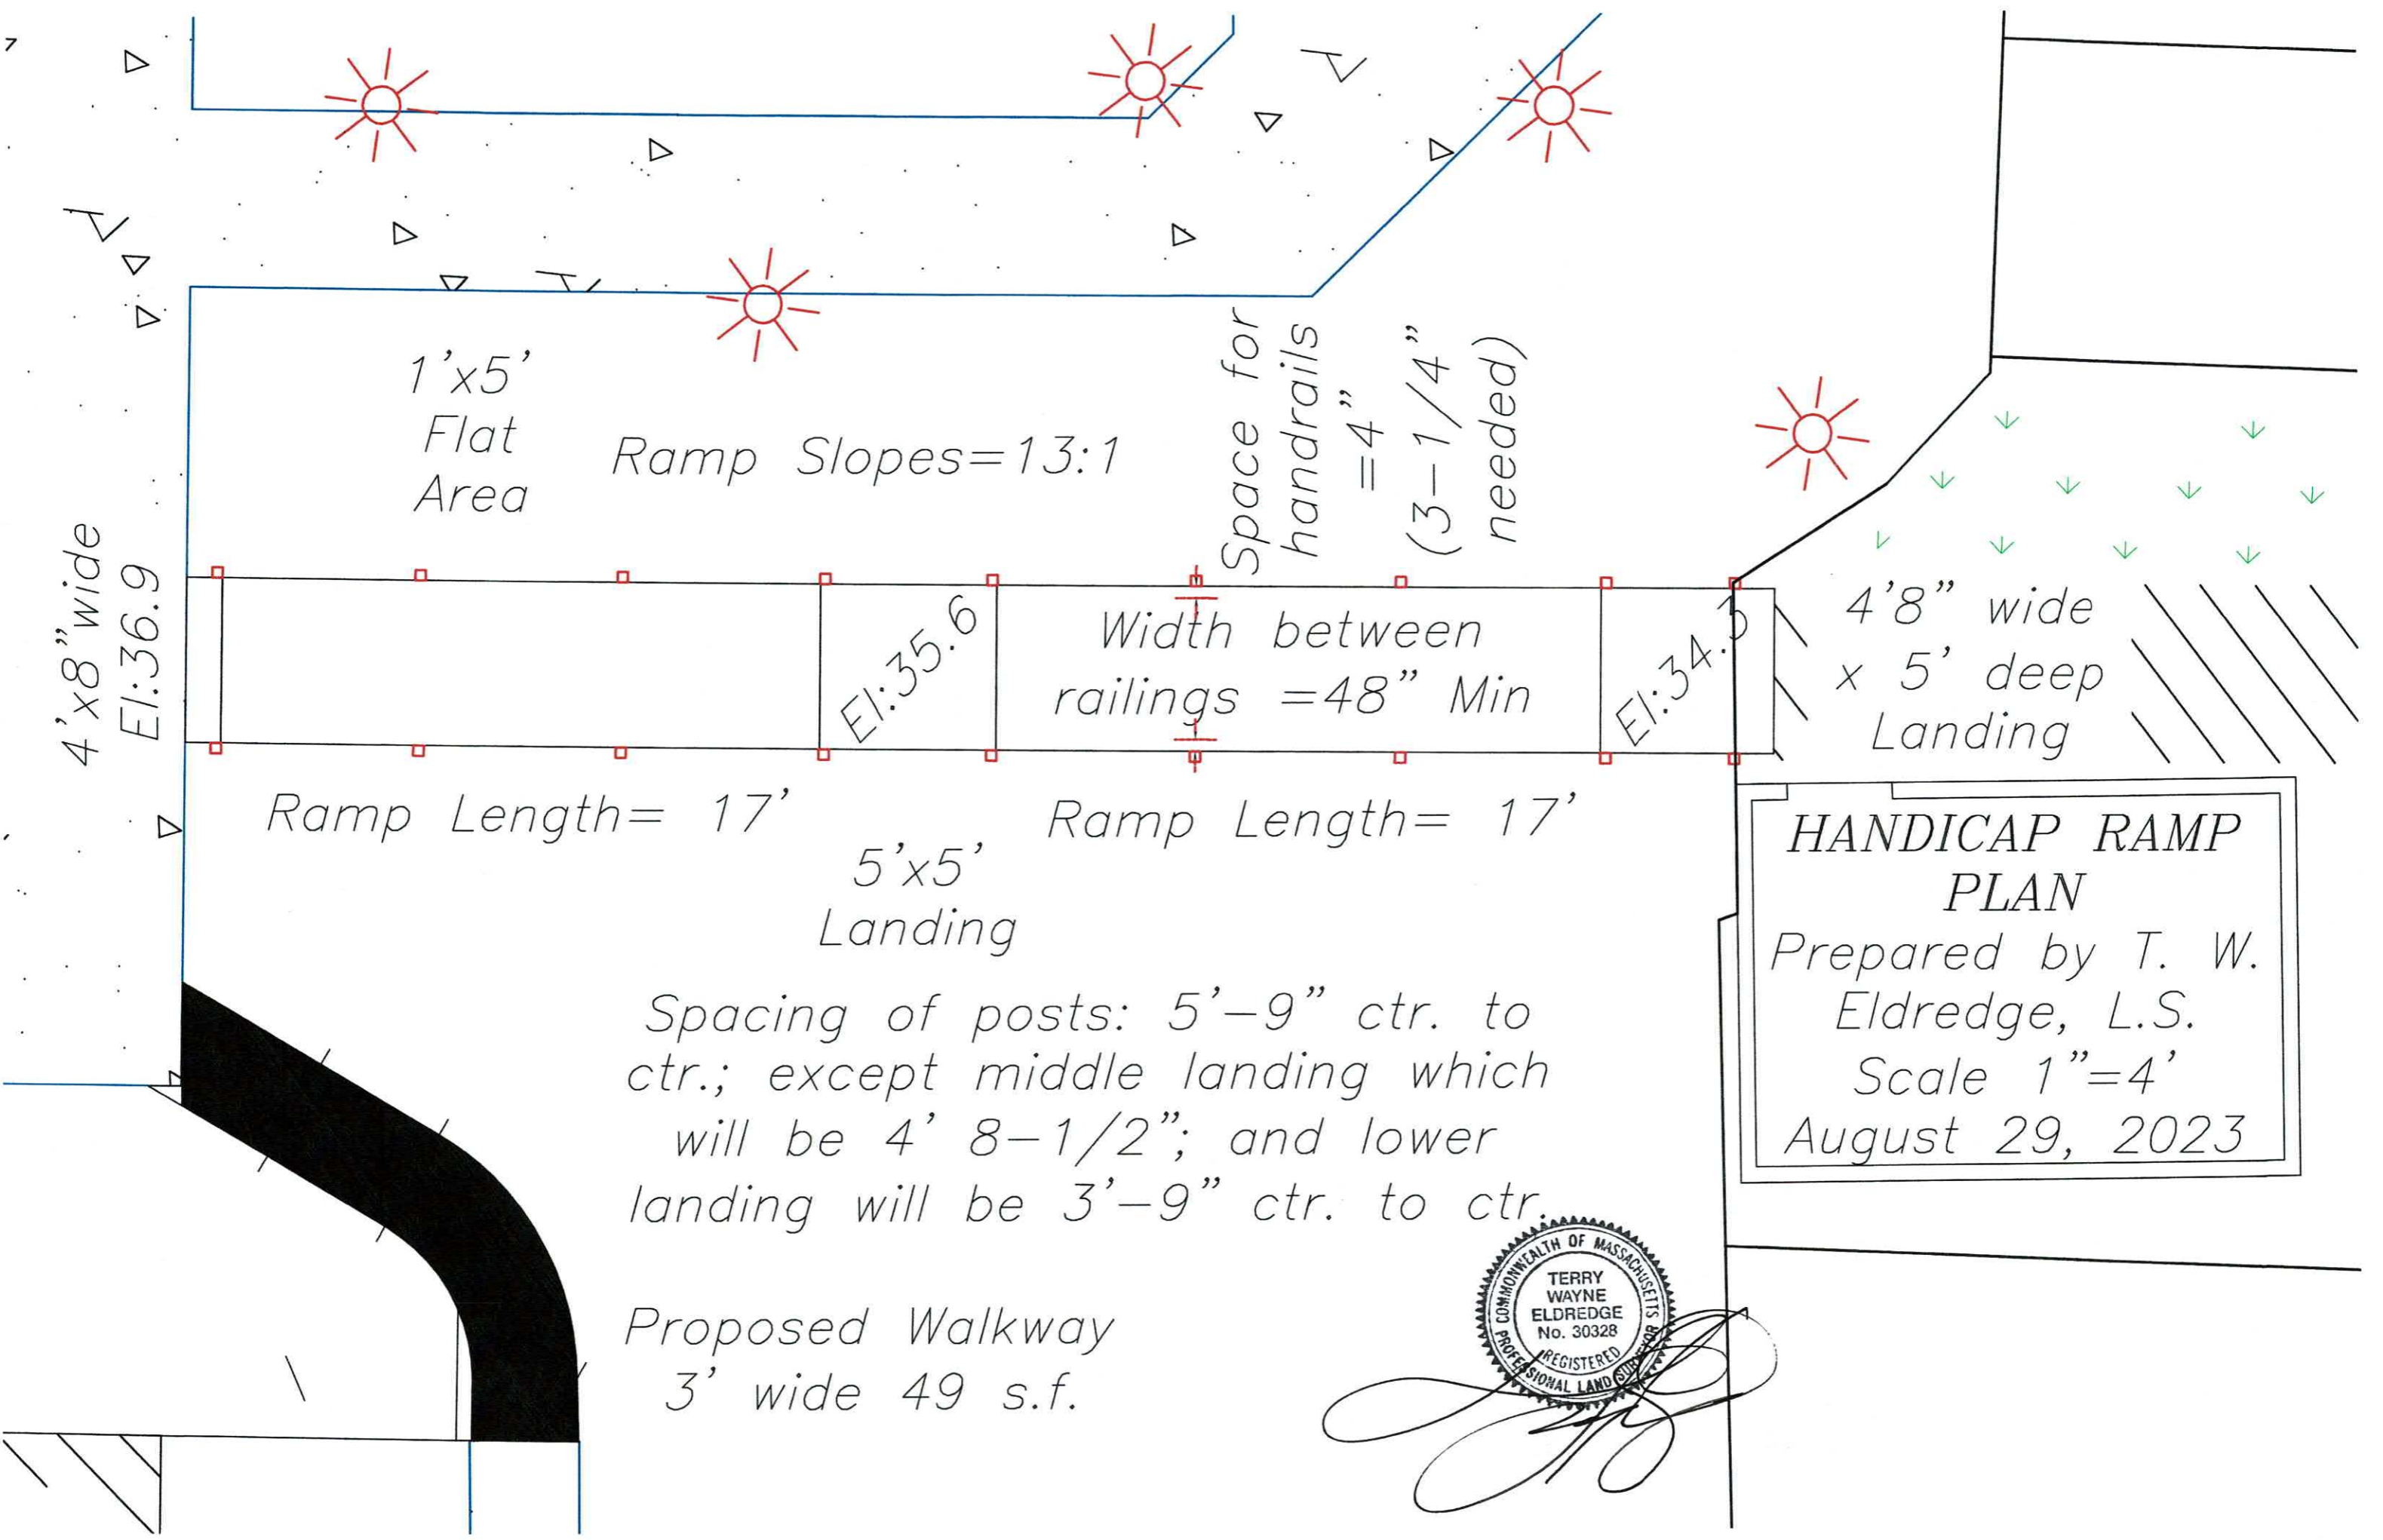 1'x5'
Flat
Area
Ramp Slopes=13:1
Space for
handrails
=4"
(3-1/4"
needed)
4'x8"wide
El:36.9
El:35.6
Width between
railings =48" Min
El:34.3
4'8" wide
x 5' deep
Landing
Ramp Length= 17'
Ramp Length= 17'
5'x5'
Landing
Spacing of posts: 5'-9" ctr. to
ctr.; except middle landing which
will be 4' 8-1/2"; and lower
landing will be 3'-9" ctr. to ctr.
Proposed Walkway
3' wide 49 s.f.
HANDICAP RAMP
PLAN
Prepared by T. W.
Eldredge, L.S.
Scale 1"=4'
August 29, 2023
COMMONWEALTH OF MASSACHUSETTS
TERRY
WAYNE
ELDREDGE
No. 30328
REGISTERED
PROFESSIONAL LAND SURVEYOR